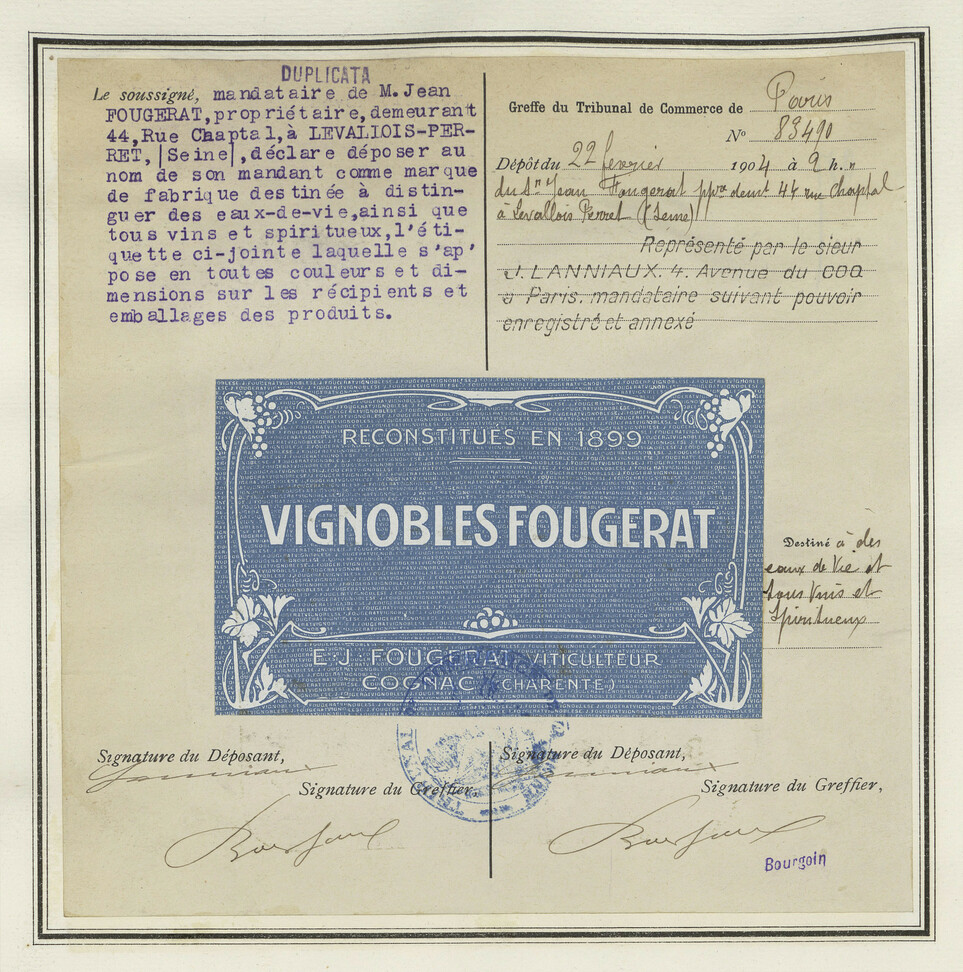 DUPLICATA
Le soussigné, mandataire de M. Jean
FOUGERAT, propriétaire, demeurant
44, Rue Chaptal, à LEVALLOIS-PER-
RET, |Seine|, déclare déposer au
nom de son mandant comme marque
de fabrique destinée à distin-
guer des eaux-de-vie, ainsi que
tous vins et spiritueux, l'éti-
quette ci-jointe laquelle s'ap'
pose en toutes couleurs et di-
mensions sur les récipients et
emballages des produits.
Greffe du Tribunal de Commerce de Paris
N° 83490
Dépôt du 22 fevrier 1904 à 2 h. "
du Sr Jean Fougerat pprе demt 44 rue Chaptal
à Levallois Perret (Seine)
Représenté par le sieur
J. LANNIAUX. 4. Avenue du COQ
à Paris. mandataire suivant pouvoir
enregistré et annexé
RECONSTITUÉS EN 1899
VIGNOBLES FOUGERAT
E. J. FOUGERAT VITICULTEUR
COGNAC (CHARENTE)
Destiné à des
eaux de Vie et
tous Vins et
Spiritueux
Signature du Déposant,
Signature du Greffier,
Signature du Déposant,
Signature du Greffier,
Bourgoin